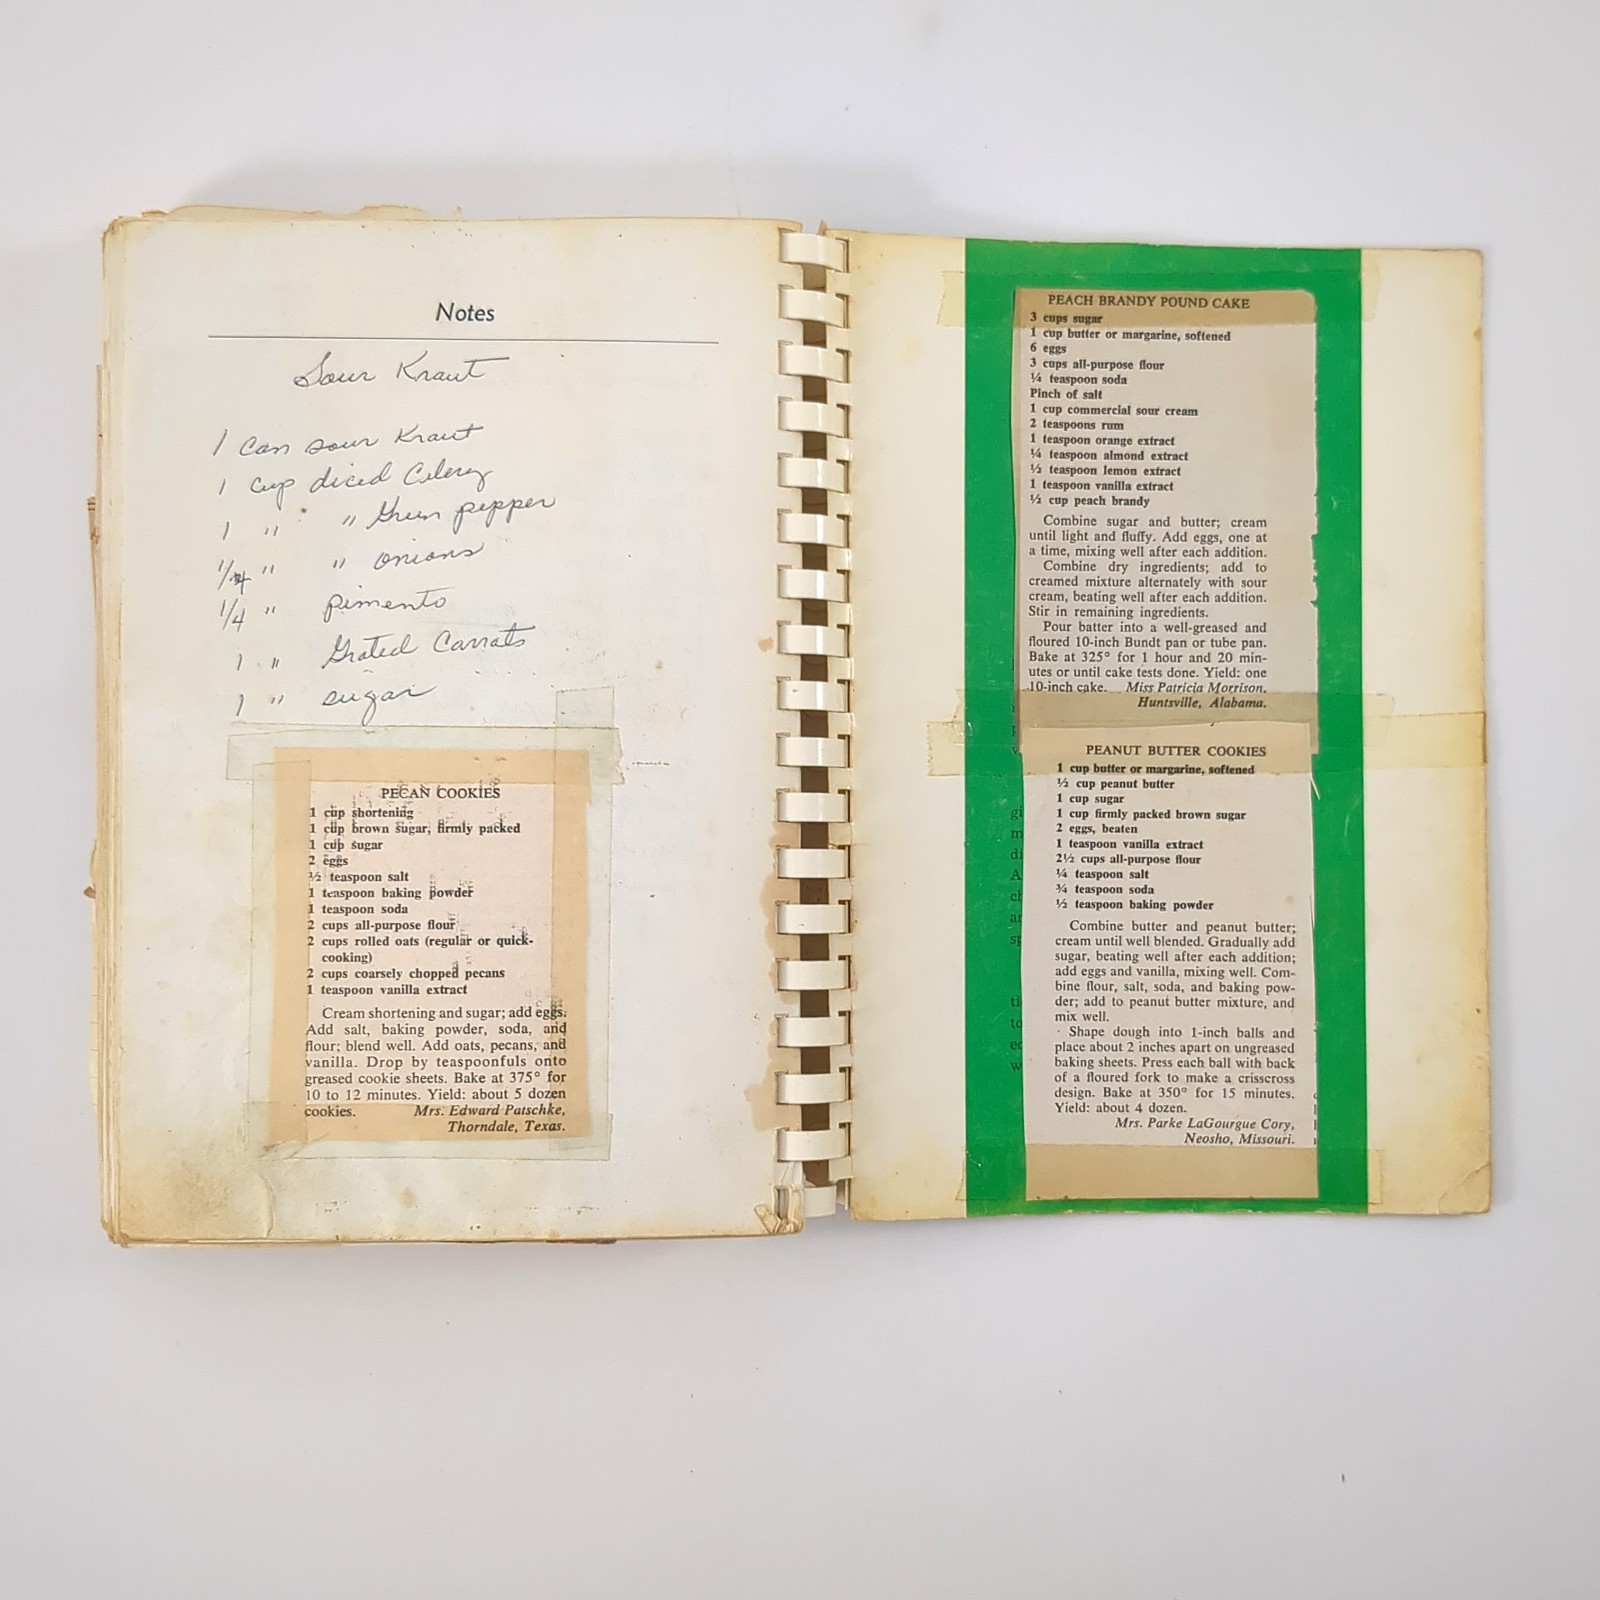 Notes
Sour Kraut
1 Can sour Kraut
1 cup diced Celery
1 " " Green pepper
1/4 " " onions
1/4 " pimento
1 " Grated Carrats
1 " sugar
PECAN COOKIES
1 cup shortening
1 cup brown sugar, firmly packed
1 cup sugar
2 eggs
½ teaspoon salt
1 teaspoon baking powder
1 teaspoon soda
2 cups all-purpose flour
2 cups rolled oats (regular or quick-
cooking)
2 cups coarsely chopped pecans
1 teaspoon vanilla extract
Cream shortening and sugar; add eggs.
Add salt, baking powder, soda, and
flour; blend well. Add oats, pecans, and
vanilla. Drop by teaspoonfuls onto
greased cookie sheets. Bake at 375° for
10 to 12 minutes. Yield: about 5 dozen
cookies. Mrs. Edward Patschke,
Thorndale, Texas.
PEACH BRANDY POUND CAKE
3 cups sugar
1 cup butter or margarine, softened
6 eggs
3 cups all-purpose flour
¼ teaspoon soda
Pinch of salt
1 cup commercial sour cream
2 teaspoons rum
1 teaspoon orange extract
¼ teaspoon almond extract
½ teaspoon lemon extract
1 teaspoon vanilla extract
½ cup peach brandy
Combine sugar and butter; cream
until light and fluffy. Add eggs, one at
a time, mixing well after each addition.
Combine dry ingredients; add to
creamed mixture alternately with sour
cream, beating well after each addition.
Stir in remaining ingredients.
Pour batter into a well-greased and
floured 10-inch Bundt pan or tube pan.
Bake at 325° for 1 hour and 20 min-
utes or until cake tests done. Yield: one
10-inch cake. Miss Patricia Morrison,
Huntsville, Alabama.
PEANUT BUTTER COOKIES
1 cup butter or margarine, softened
½ cup peanut butter
1 cup sugar
1 cup firmly packed brown sugar
2 eggs, beaten
1 teaspoon vanilla extract
2½ cups all-purpose flour
¼ teaspoon salt
¾ teaspoon soda
½ teaspoon baking powder
Combine butter and peanut butter;
cream until well blended. Gradually add
sugar, beating well after each addition;
add eggs and vanilla, mixing well. Com-
bine flour, salt, soda, and baking pow-
der; add to peanut butter mixture, and
mix well.
Shape dough into 1-inch balls and
place about 2 inches apart on ungreased
baking sheets. Press each ball with back
of a floured fork to make a crisscross
design. Bake at 350° for 15 minutes.
Yield: about 4 dozen.
Mrs. Parke LaGourgue Cory,
Neosho, Missouri.